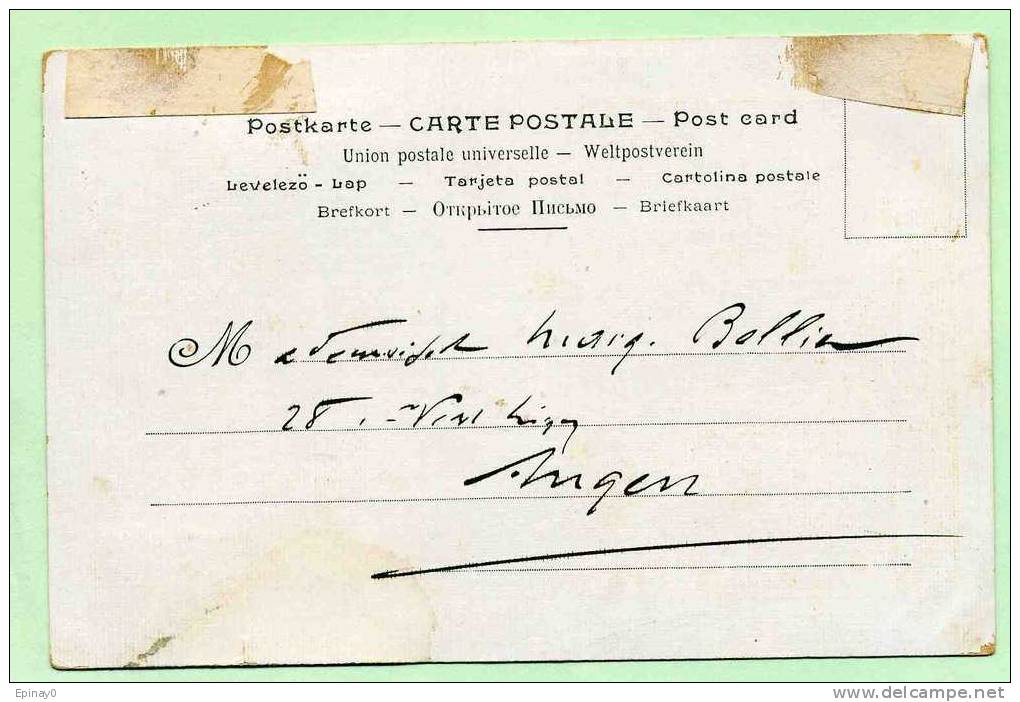 Postkarte — CARTE POSTALE — Post card
Union postale universelle — Weltpostverein
Levelezö - Lap — Tarjeta postal — Cartolina postale
Brefkort — Открытое Письмо — Briefkaart
Mademoiselle Marg. Bellier
28
Angers
Epinay0
http://www.delcampe.net